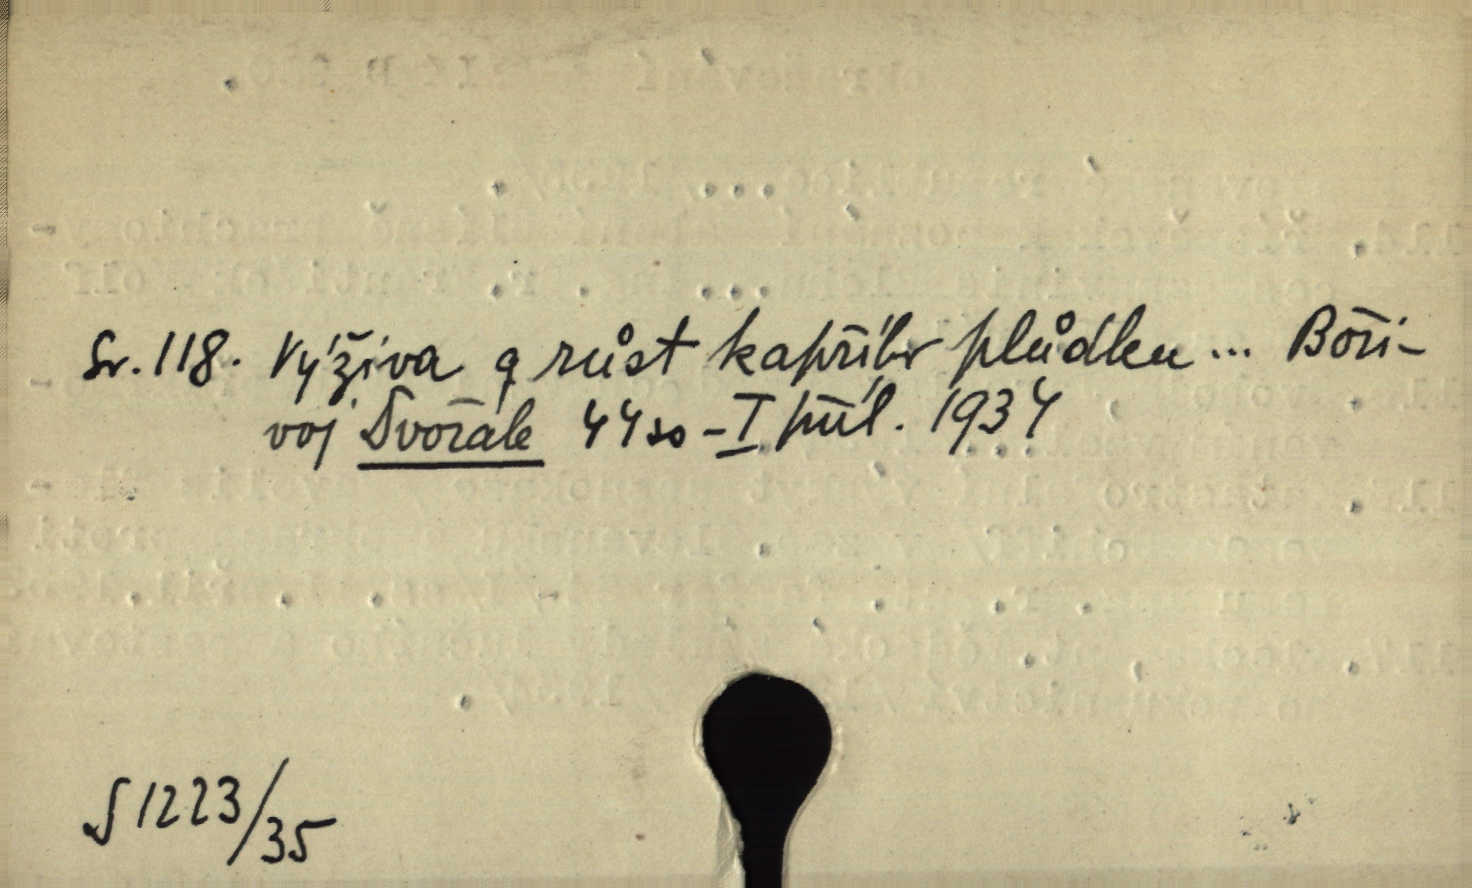 Sv. 118. Výživa a růst kapřího plůdku ... Boři-
voj Dvořák 44 so - I příl. 1934
S 1223/35